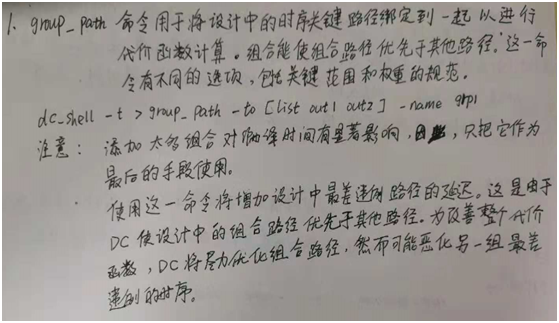 1. group_path 命令用于将设计中的时序关键路径绑定到一起以进行
代价函数计算。组合能使组合路径优先于其他路径。这一命
令有不同的选项,包括关键范围和权重的规范。
dc_shell -t > group_path -to [list out1 out2] -name grp1
注意: 添加太多组合对编译时间有显著影响, 只把它作为
最后的手段使用。
使用这一命令将增加设计中最差违例路径的延迟。这是由于
DC使设计中的组合路径优先于其他路径。为改善整个代价
函数,DC将尽力优化组合路径,然而可能恶化另一组最差
违例的时序。